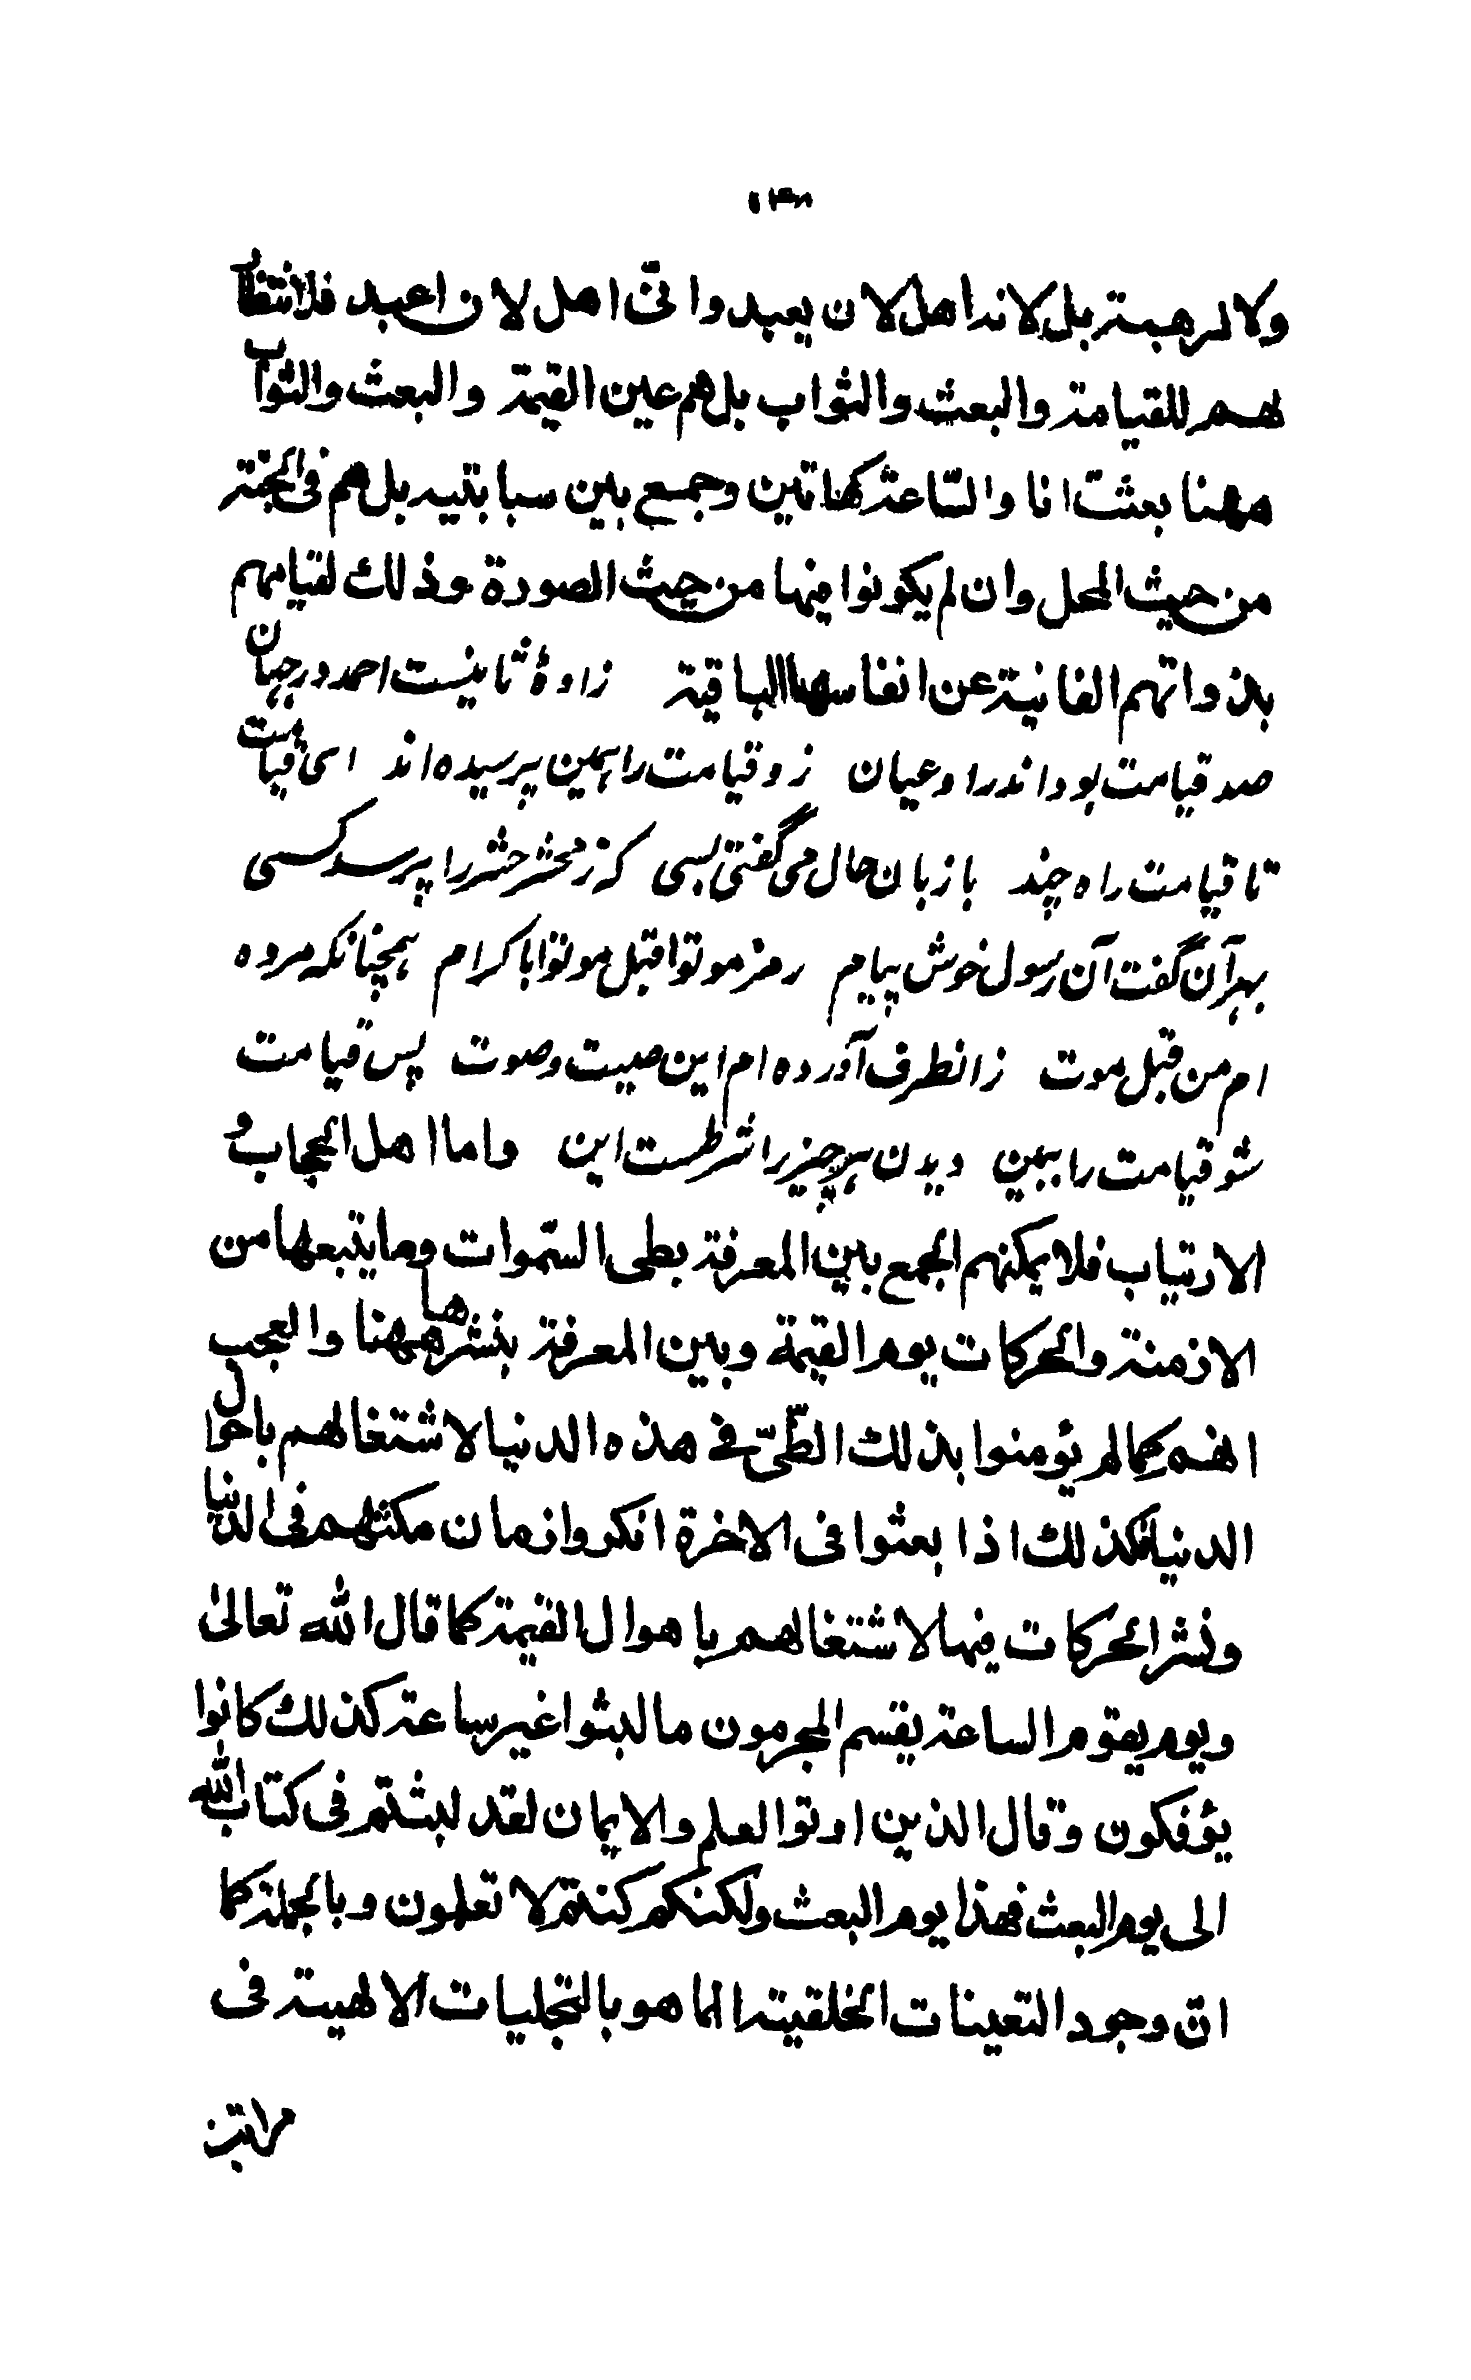 ۱۳۸
ولا لرهبة بل لانه اهل لان يعبد وانّى اهل لان اعبد فلا انتظار
لهم للقيامة والبعث والثواب بل هم عين القيمة والبعث والثواب
ههنا بعثت انا والسّاعة كهاتين وجمع بين سبابتيه بل هم فى الجنّة
من حيث المحل وان لم يكونوا فيها من حيث الصورة وذلك لقيامهم
بذواتهم الفانية عن انفاسها الباقية زادهٔ ثانیست احمد در جهان
صد قیامت بود اندر او عیان زو قیامت را همین پرسیده‌اند ای قیامت
تا قیامت راه چند با زبان حال می گفتی بسی که ز محشر حشر را پرسد کسی
بهر آن گفت آن رسول خوش پیام رمز موتوا قبل موتوا با کرام همچنانکه مرده
ام من قبل موت زانطرف آورده ام این صیت و صوت پس قیامت
شو قیامت را ببین دیدن هر چیز را شرطست این واما اهل الحجاب و
الارتياب فلا يمكنهم الجمع بين المعرفة بطى السّموات وما يتبعها من
الازمنة والحركات يوم القيمة وبين المعرفة بنشرها ههنا والعجب
انهم كما لم يؤمنوا بذلك الطّىّ فى هذه الدنيا لاشتغالهم باحوال
الدنيا فكذلك اذا بعثوا فى الاخرة انكروا زمان مكثهم فى الدنيا
ونشر الحركات فيها لاشتغالهم باهوال القيمة كما قال الله تعالىٰ
ويوم يقوم الساعة يقسم المجرمون ما لبثوا غير ساعة كذلك كانوا
يؤفكون وقال الذين اوتوا العلم والايمان لقد لبثتم فى كتاب الله
الى يوم البعث فهذا يوم البعث ولكنكم كنتم لا تعلمون وبالجملة كما
انّ وجود التعينات الخلقية انما هو بالتجليات الالهية فى
مراتب